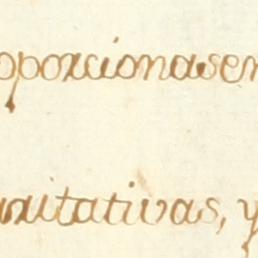 oporcionasen
uitativas, y